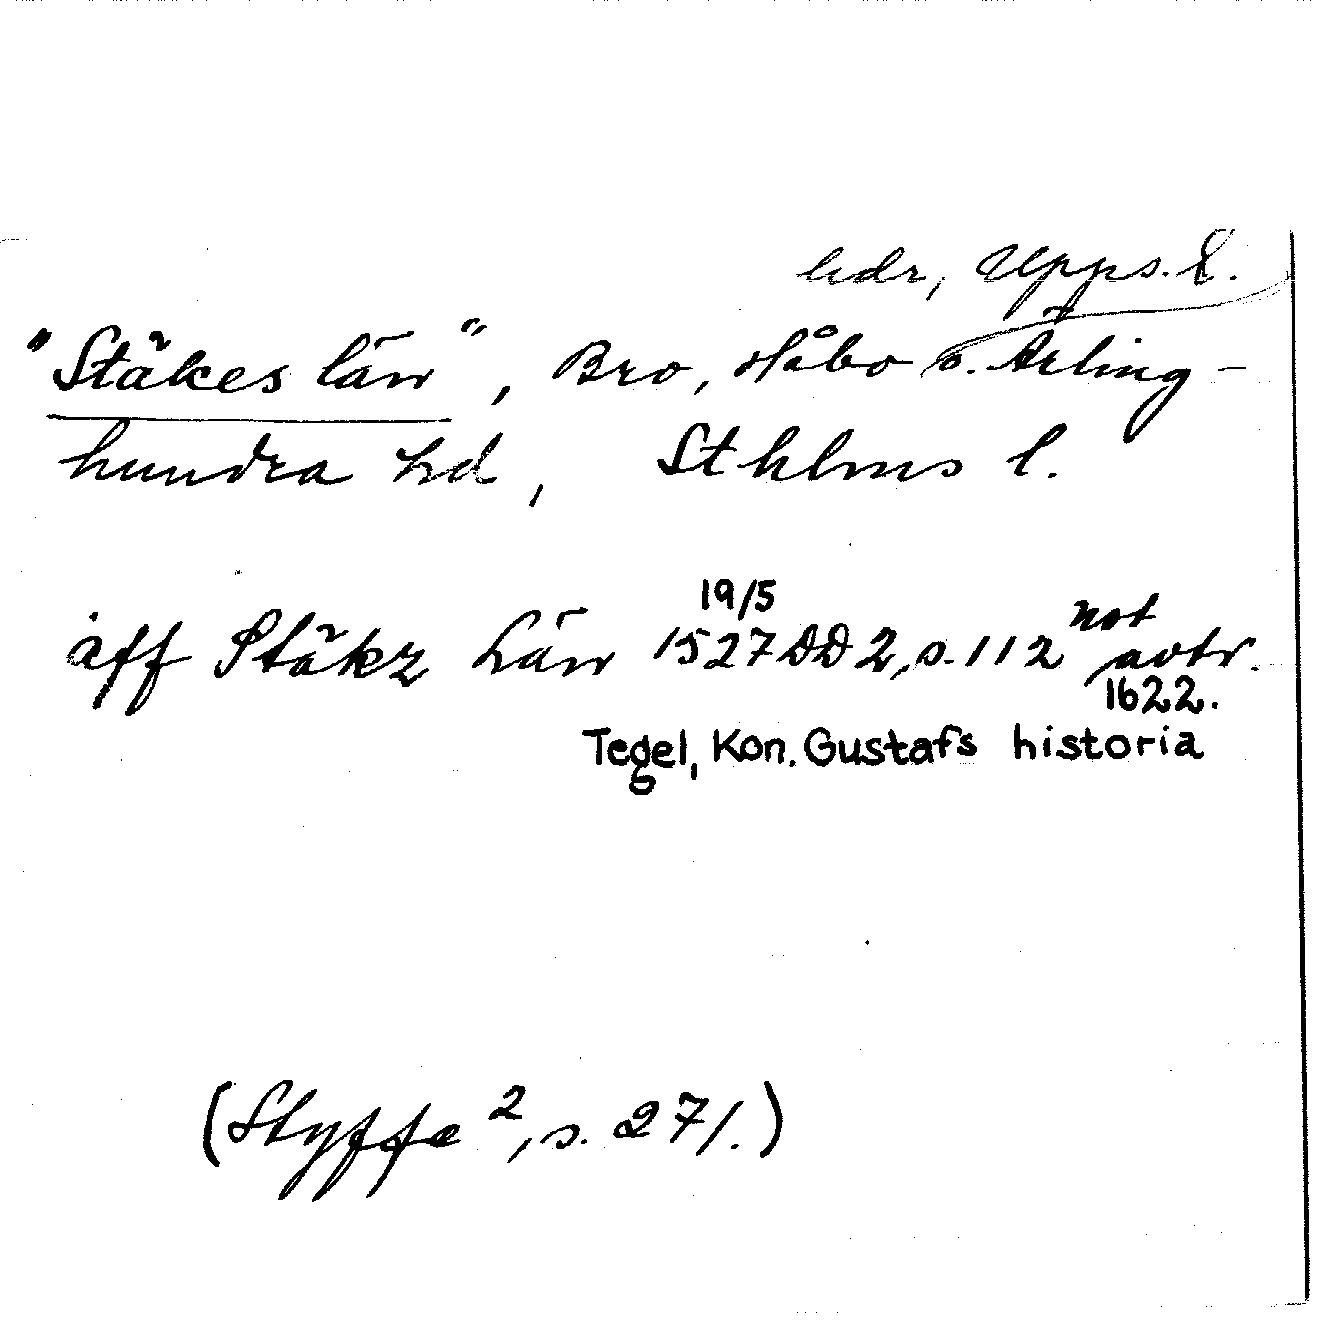 hdr, Upps. l.
"Stäkes län", Bro, Håbo o. Ärling-
hundra hd, Sthlms l.
aff Stäkz Län 19/5 1527 DD 2, s. 112 not avtr. 1622.
Tegel, Kon. Gustafs historia
(Styffe 2, s. 271.)